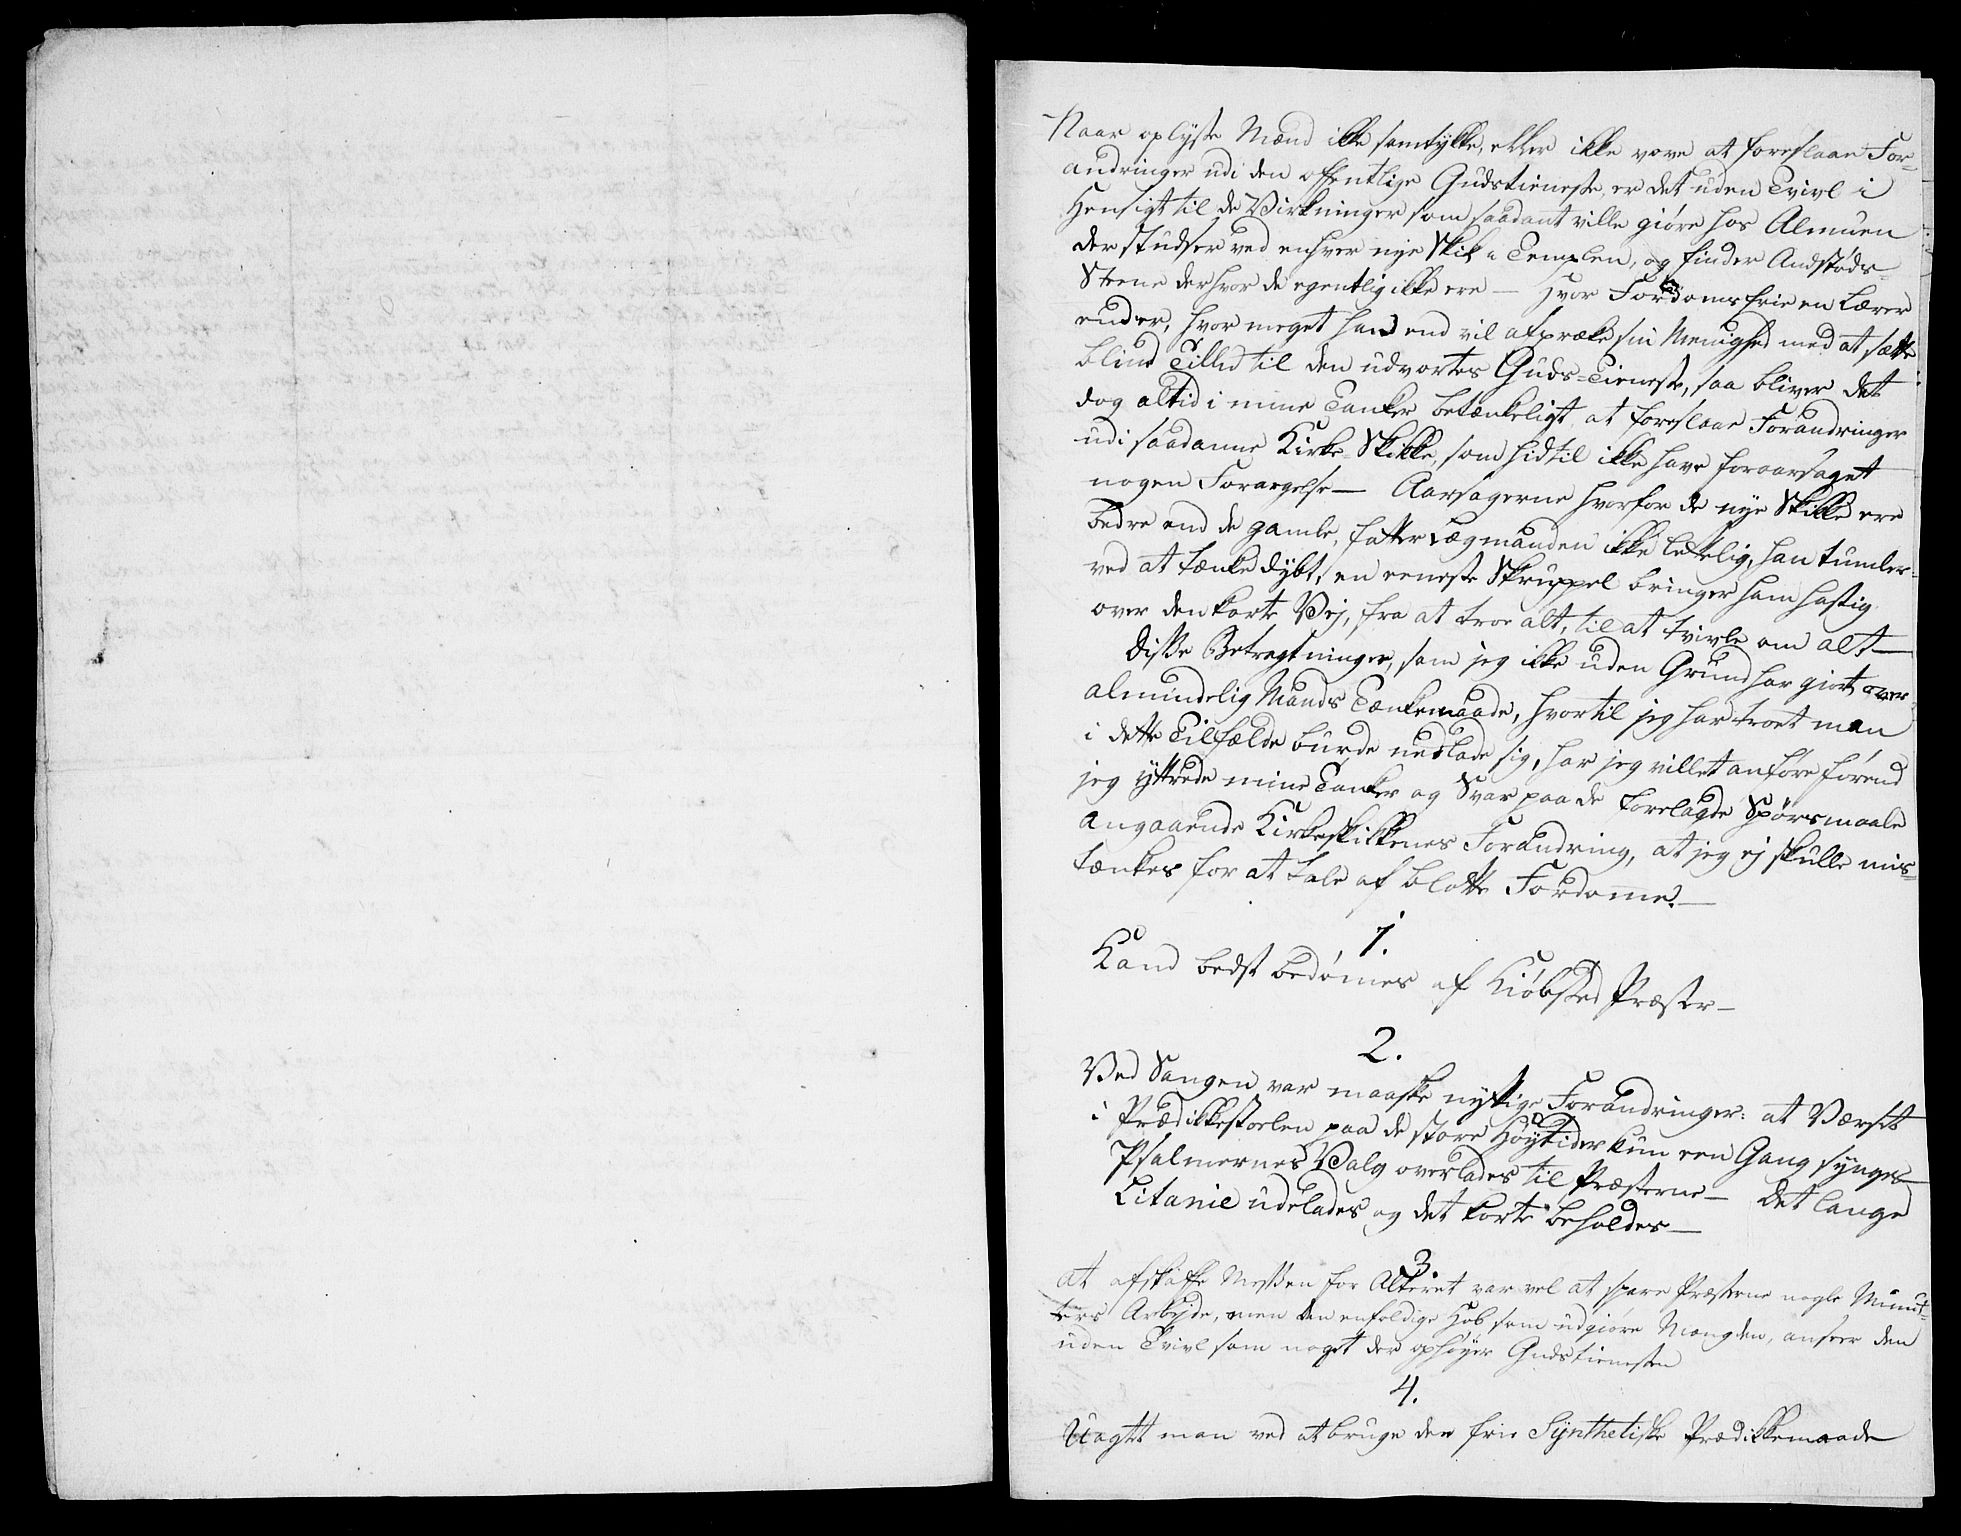 Naar oplyste Mænd ikke samtykke, eller ikke vove at foreslaae For-
andringer udi den offentlige Gudstieneste, er det uden Tvivl i
Hensigt til de Virkninger som saadant ville giøre hos Almuen
der studser ved enhver nye Skik i Templen, og finder Andstøds-
Steene der hvor de egentlig ikke ere — Hvor Fordoms frie en Lærer
end er, hvor meget han end vil afpræke sin Menighed med at sætte
blind Tillid til den udvortes Guds-Tieneste, saa bliver det
dog altid i mine Tanker betænkeligt, at foreslaae Forandringer
udi saadanne Kirke-Skikke, som hidtil ikke have foraarsaget
nogen Forargelse — Aarsagerne hvorfor de nye Skikke ere
bedre end de gamle, fatter Lægmanden ikke lettelig, han tumler
ved at tænke dybt, en eeneste Skruppel bringer ham hastig
over den korte Vej, fra at troe alt, til at tvivle om alt —
Disse Betragtninger, som jeg ikke uden Grund har giort over
almindelig Mands Tænkemaade, hvortil jeg har troet man
i dette Tilfælde burde nedlade sig, har jeg villet anføre førend
jeg yttrede mine Tanker og Svar paa de forelagde Spørsmaale
angaaende Kirkeskikkenes Forandring, at jeg ej skulle mis-
tænkes for at tale af blotte Fordomme. —
1.
Kand bedst bedømmes af Kiøbsted Præster —
2.
Ved Sangen var maaske nyttige Forandringer: at Værset
i Prædikkestoelen paa de store Høytider kun een Gang synges —
Psalmernes Valg overlades til Præsterne — Det lange
Litanie udelades og det korte beholdes —
3.
At afskaffe Messen for Alteret var vel at spare Præsterne nogle Minut-
ters Arbejde, men den eenfoldige Hob som udgiøre Mængden, anseer den
uden Tvivl som noget der ophøyer Gudstienesten
4.
Uagtet man ved at bruge den frie Synthetiske Prædikkemaade